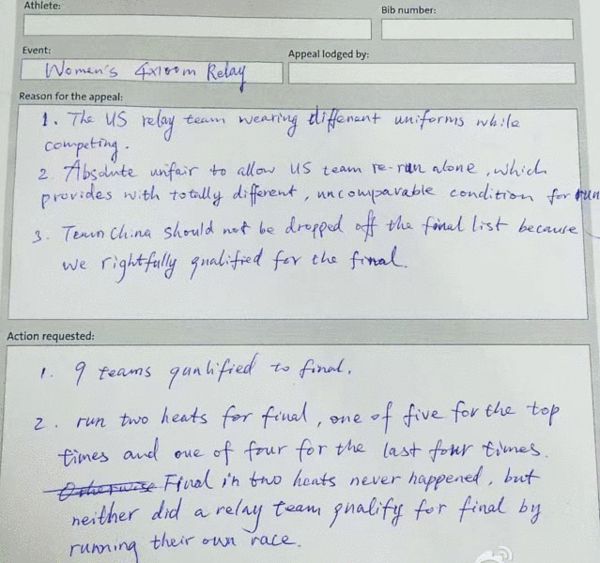 Athlete:
Bib number:
Event:
Appeal lodged by:
Women's 4x100m Relay
Reason for the appeal:
1. The US relay team wearing different uniforms while
competing.
2. Absolute unfair to allow US team re-run alone, which
provides with totally different, uncomparable condition for run
3. Team China should not be dropped off the final list because
we rightfully qualified for the final.
Action requested:
1. 9 teams qualified to final.
2. run two heats for final, one of five for the top
times and one of four for the last four times.
Otherwise Final in two heats never happened, but
neither did a relay team qualify for final by
running their own race.